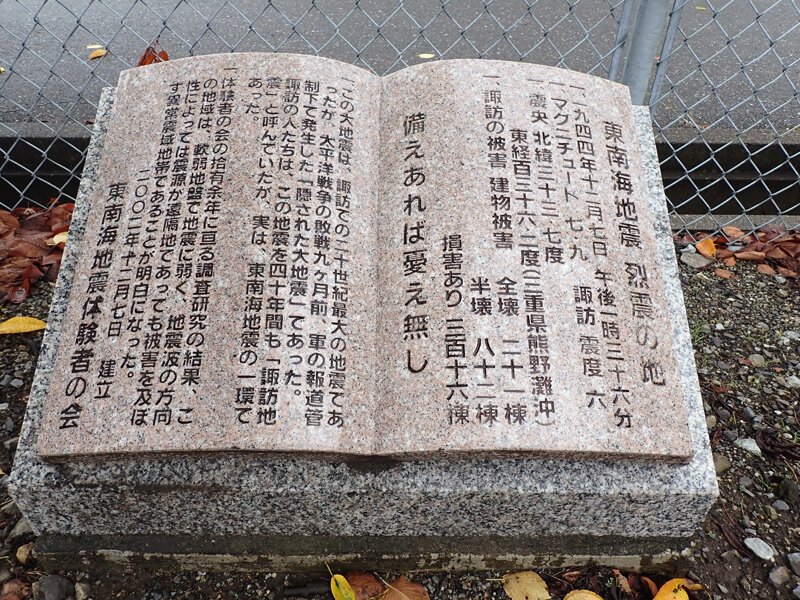 東南海地震 烈震の地
一、一九四四年十二月七日 午後一時三十六分
マグニチュード 七、九 諏訪 震度 六
一 震央 北緯三十三、七度
東経百三十六、二度(三重県熊野灘沖)
一 諏訪の被害 建物被害 全壊 二十一棟
半壊 八十二棟
損害あり 三百十六棟
備えあれば憂え無し
一 この大地震は、諏訪での二十世紀最大の地震であ
ったが、太平洋戦争の敗戦九ヶ月前、軍の報道管
制下で発生した「隠された大地震」であった。
諏訪の人たちは、この地震を四十年間も「諏訪地
震」と呼んでいたが、実は、東南海地震の一環で
あった。
一 体験者の会の拾有余年に亘る調査研究の結果、こ
の地域は、軟弱地盤で地震に弱く、地震波の方向
性によっては震源が遠隔地であっても被害を及ぼ
す異常震域地帯であることが明白になった。
二〇〇二年十二月七日 建立
東南海地震体験者の会